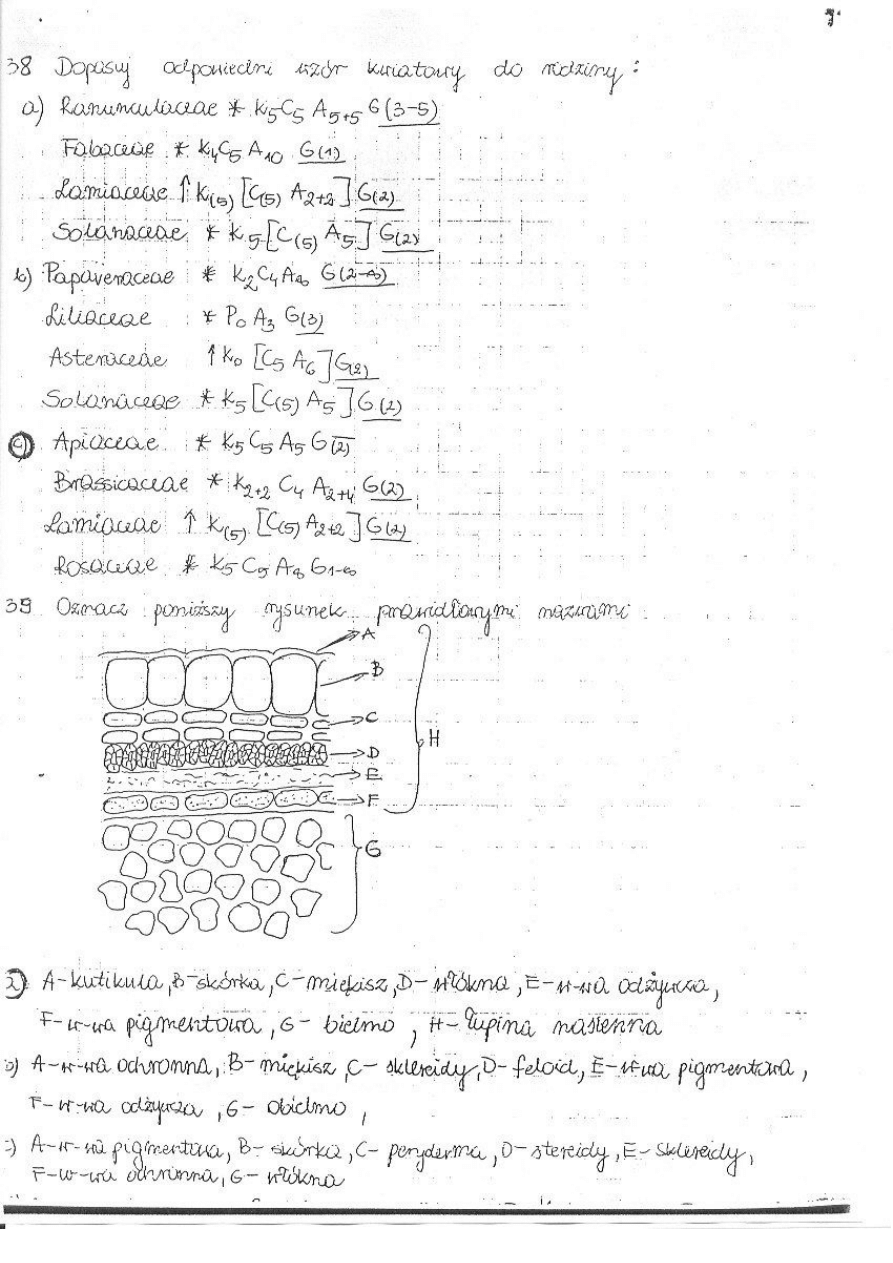 38 Dopasuj odpowiedni wzór kwiatowy do rodziny:
a) Ranunculaceae * K5C5 A5+5 G(3-5)
Fabaceae * K4C5 A10 G(1)
Lamiaceae ↑K(5) [C(5) A2+2] G(2)
Solanaceae * K5[C(5) A5] G(2)
b) Papaveraceae * K2C4A∞ G(2-∞)
Liliaceae * P0 A3 G(3)
Asteraceae ↑K0 [C5 A6] G(2)
Solanaceae * K5[C(5) A5] G(2)
c) Apiaceae * K5 C5 A5 G(2)
Brassicaceae * K2+2 C4 A2+4 G(2)
Lamiaceae ↑ K(5) [C(5) A2+2] G(2)
Rosaceae * K5 C5 A∞ G1-∞
39 Oznacz poniższy rysunek prawidłowymi nazwami
A
B
C
H
D
E
F
G
a) A-kutikula, B-skórka, C-miękisz, D-włókna, E-w-wa odżywcza,
F-w-wa pigmentowa, G-bielmo, H-łupina nasienna
b) A-w-wa ochronna, B-miękisz, C-sklereidy, D-feloid, E-w-wa pigmentowa,
F-w-wa odżywcza, G-obielmo,
c) A-w-wa pigmentowa, B-skórka, C-peryderma, D-stereidy, E-sklereidy,
F-w-wa ochronna, G-włókna